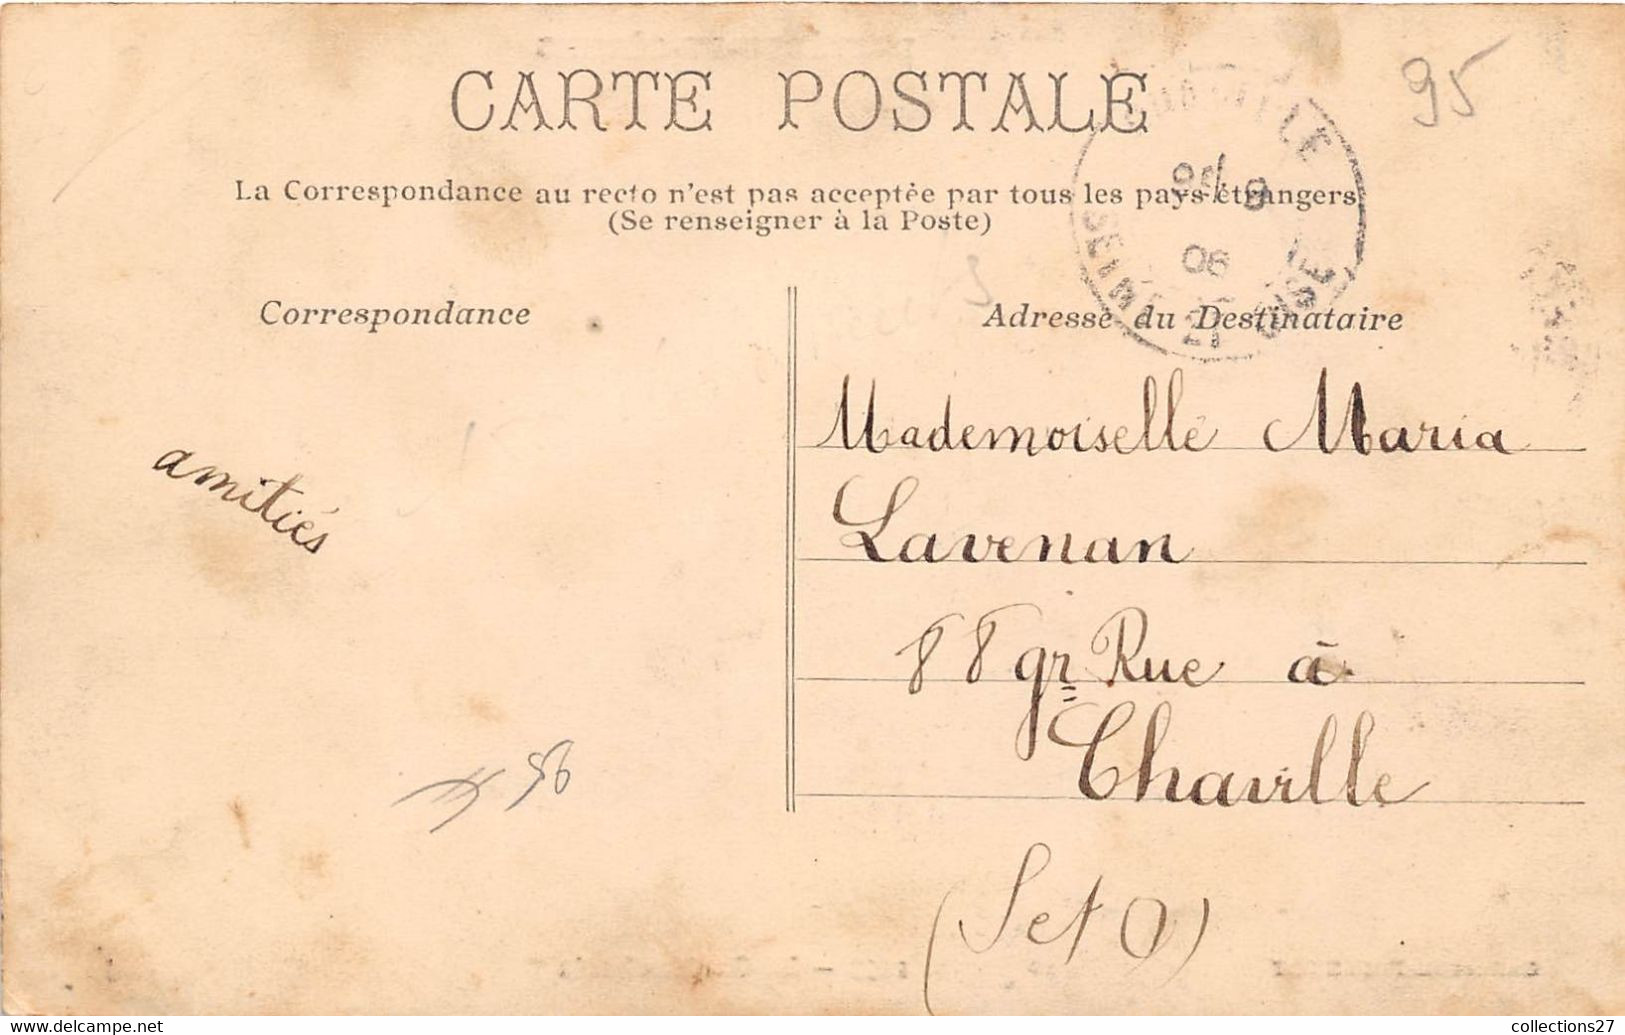 CARTE POSTALE
95
La Correspondance au recto n'est pas acceptée par tous les pays étrangers
(Se renseigner à la Poste)
SEINE ET OISE
06
Correspondance
Adresse du Destinataire
amitiés
Mademoiselle Maria
Lavenan
88 gr Rue à
Chaville
(S et O)
56
collections27